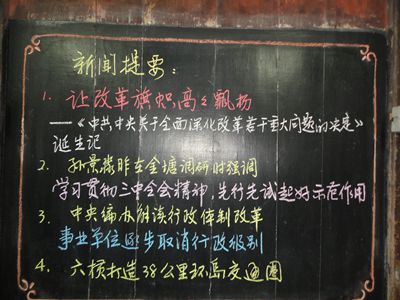 新闻提要:
1. 让改革旗帜高高飘扬
——《中共中央关于全面深化改革若干重大问题的决定》
诞生记
2. 孙景淼昨在金塘调研时强调
学习贯彻三中全会精神,先行先试起好示范作用
3. 中央编办解读行政体制改革
事业单位逐步取消行政级别
4. 六横打造38公里环岛交通圈